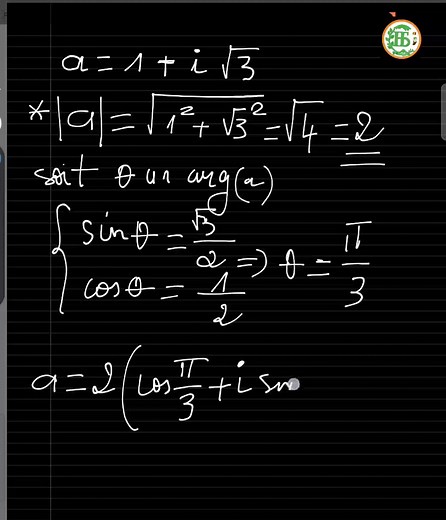 a = 1 + i √3
* |a| = √(1² + √3²) = √4 = 2
soit θ un arg(a)
{ sinθ = √3/2
cosθ = 1/2 => θ = π/3
a = 2 ( cos π/3 + i sin